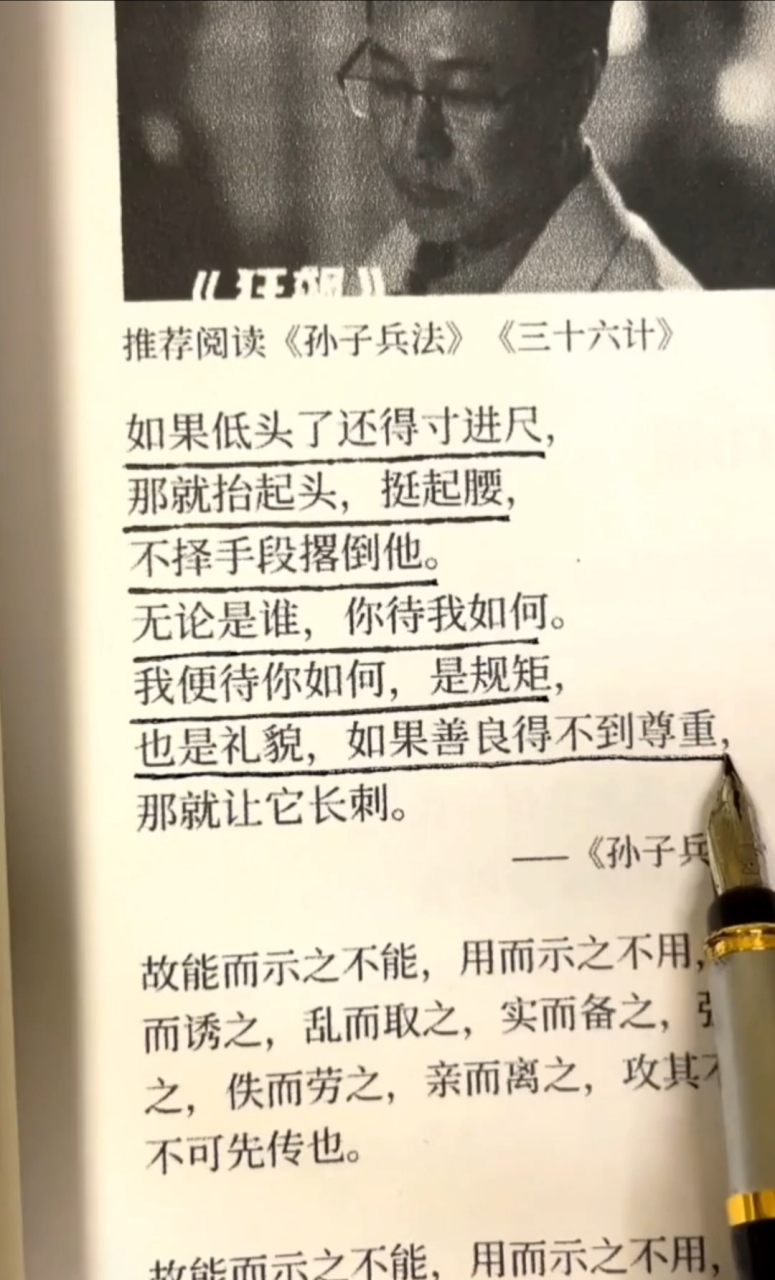 《狂飙》
推荐阅读《孙子兵法》《三十六计》
如果低头了还得寸进尺,
那就抬起头，挺起腰,
不择手段撂倒他。
无论是谁，你待我如何。
我便待你如何，是规矩,
也是礼貌，如果善良得不到尊重,
那就让它长刺。
——《孙子兵
故能而示之不能，用而示之不用,
而诱之，乱而取之，实而备之，
之，佚而劳之，亲而离之，攻其
不可先传也。
故能而示之不能，用而示之不用,